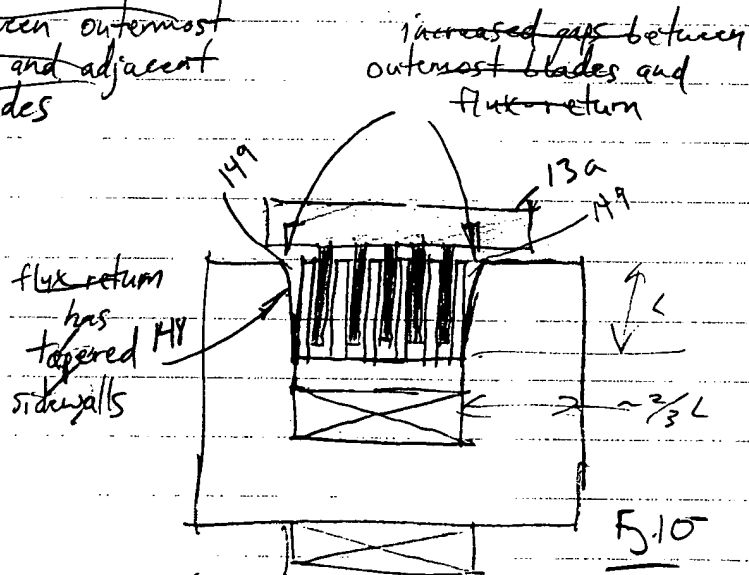 een outermost
and adjacent
des
increased gaps between
outermost blades and
flux return
149
13a
149
flux return
has
tapered
sidewalls
148
L
~2/3 L
Fig. 10